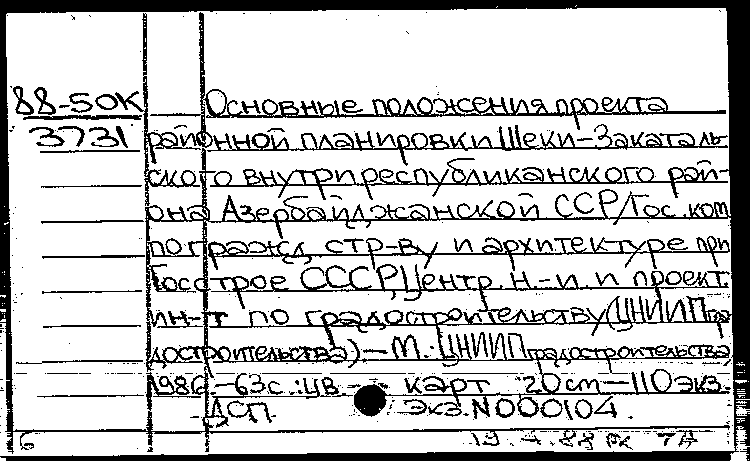 88-50К
3731
Основные положения проекта
районной планировки Шеки-Закаталь-
ского внутриреспубликанского рай-
она Азербайджанской ССР/Гос. ком.
по гражд. стр-ву и архитектуре при
Госстрое СССР, Центр. н.-и. и проект.
ин-т по градостроительству (ЦНИИПгра-
достроительства).-М.:ЦНИИПградостроительства,
1986.-63с.:цв. карт 20cm-110экз.
ДСП. Экз.N000104.
6
19.4.88 7А